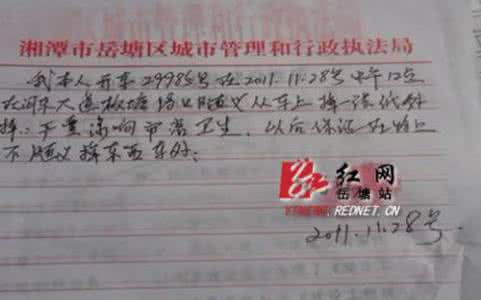 湘潭市岳塘区城市管理和行政执法局
我本人开车29985号在2011.11.28号中午12点
在河东大道板塘 路口随义从车上掉一张纸
掉. 严重影响市容卫生, 以后保证在路上
不随义掉东西车外:
红网
岳塘站
REDNET.CN
2011.11.28号.